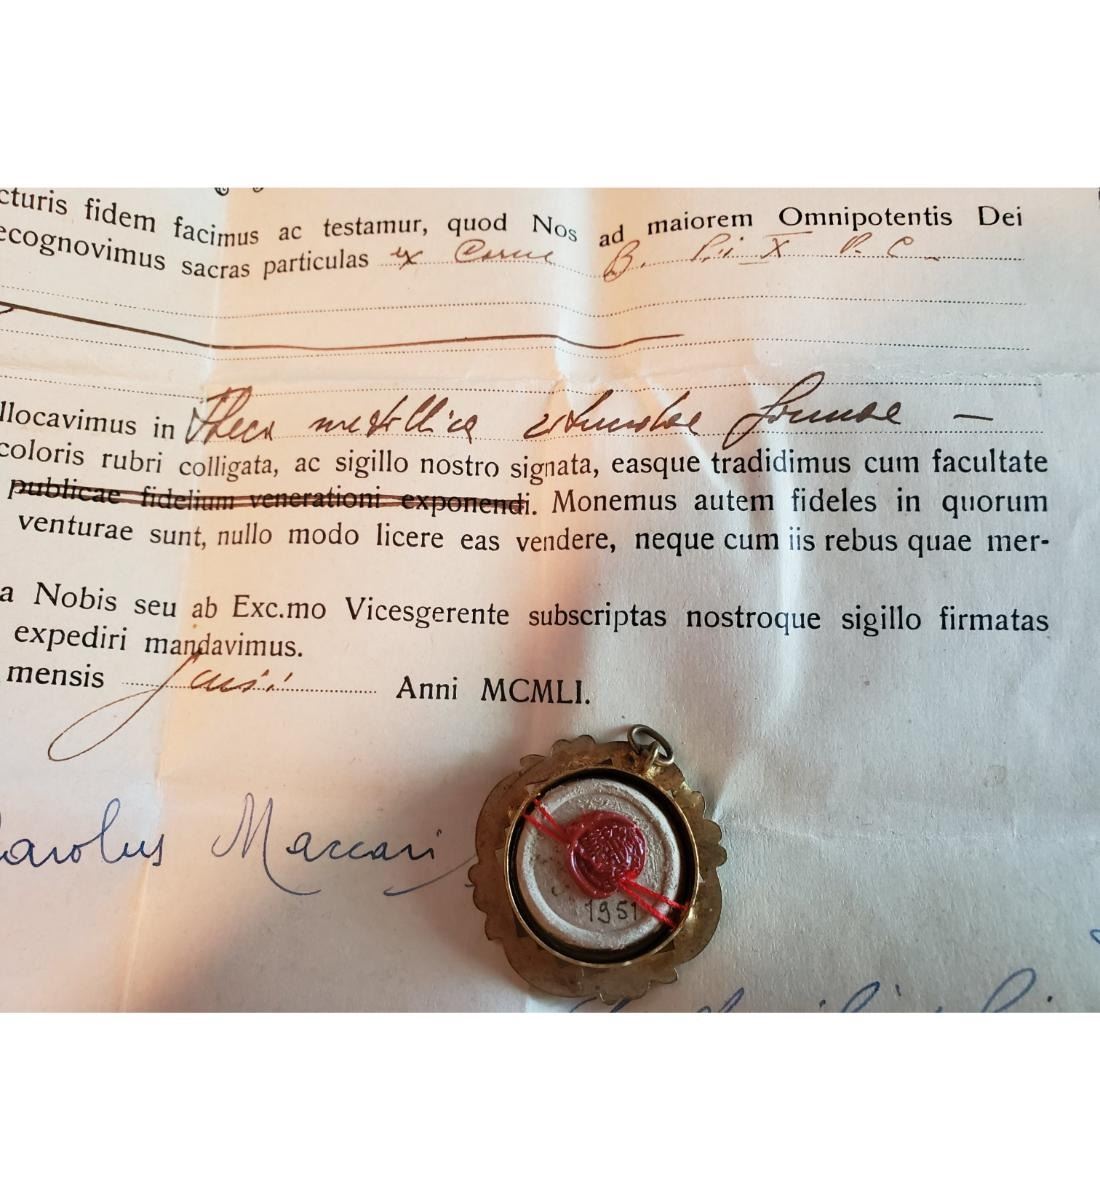 cturis fidem facimus ac testamur, quod Nos ad maiorem Omnipotentis Dei
ecognovimus sacras particulas ex Carne B. Pii X P. C.
llocavimus in Theca metallica rotundae formae —
coloris rubri colligata, ac sigillo nostro signata, easque tradidimus cum facultate
publicae fidelium venerationi exponendi. Monemus autem fideles in quorum
venturae sunt, nullo modo licere eas vendere, neque cum iis rebus quae mer-
a Nobis seu ab Exc.mo Vicesgerente subscriptas nostroque sigillo firmatas
expediri mandavimus.
mensis Junii Anni MCMLI.
arolus Maccari
1951